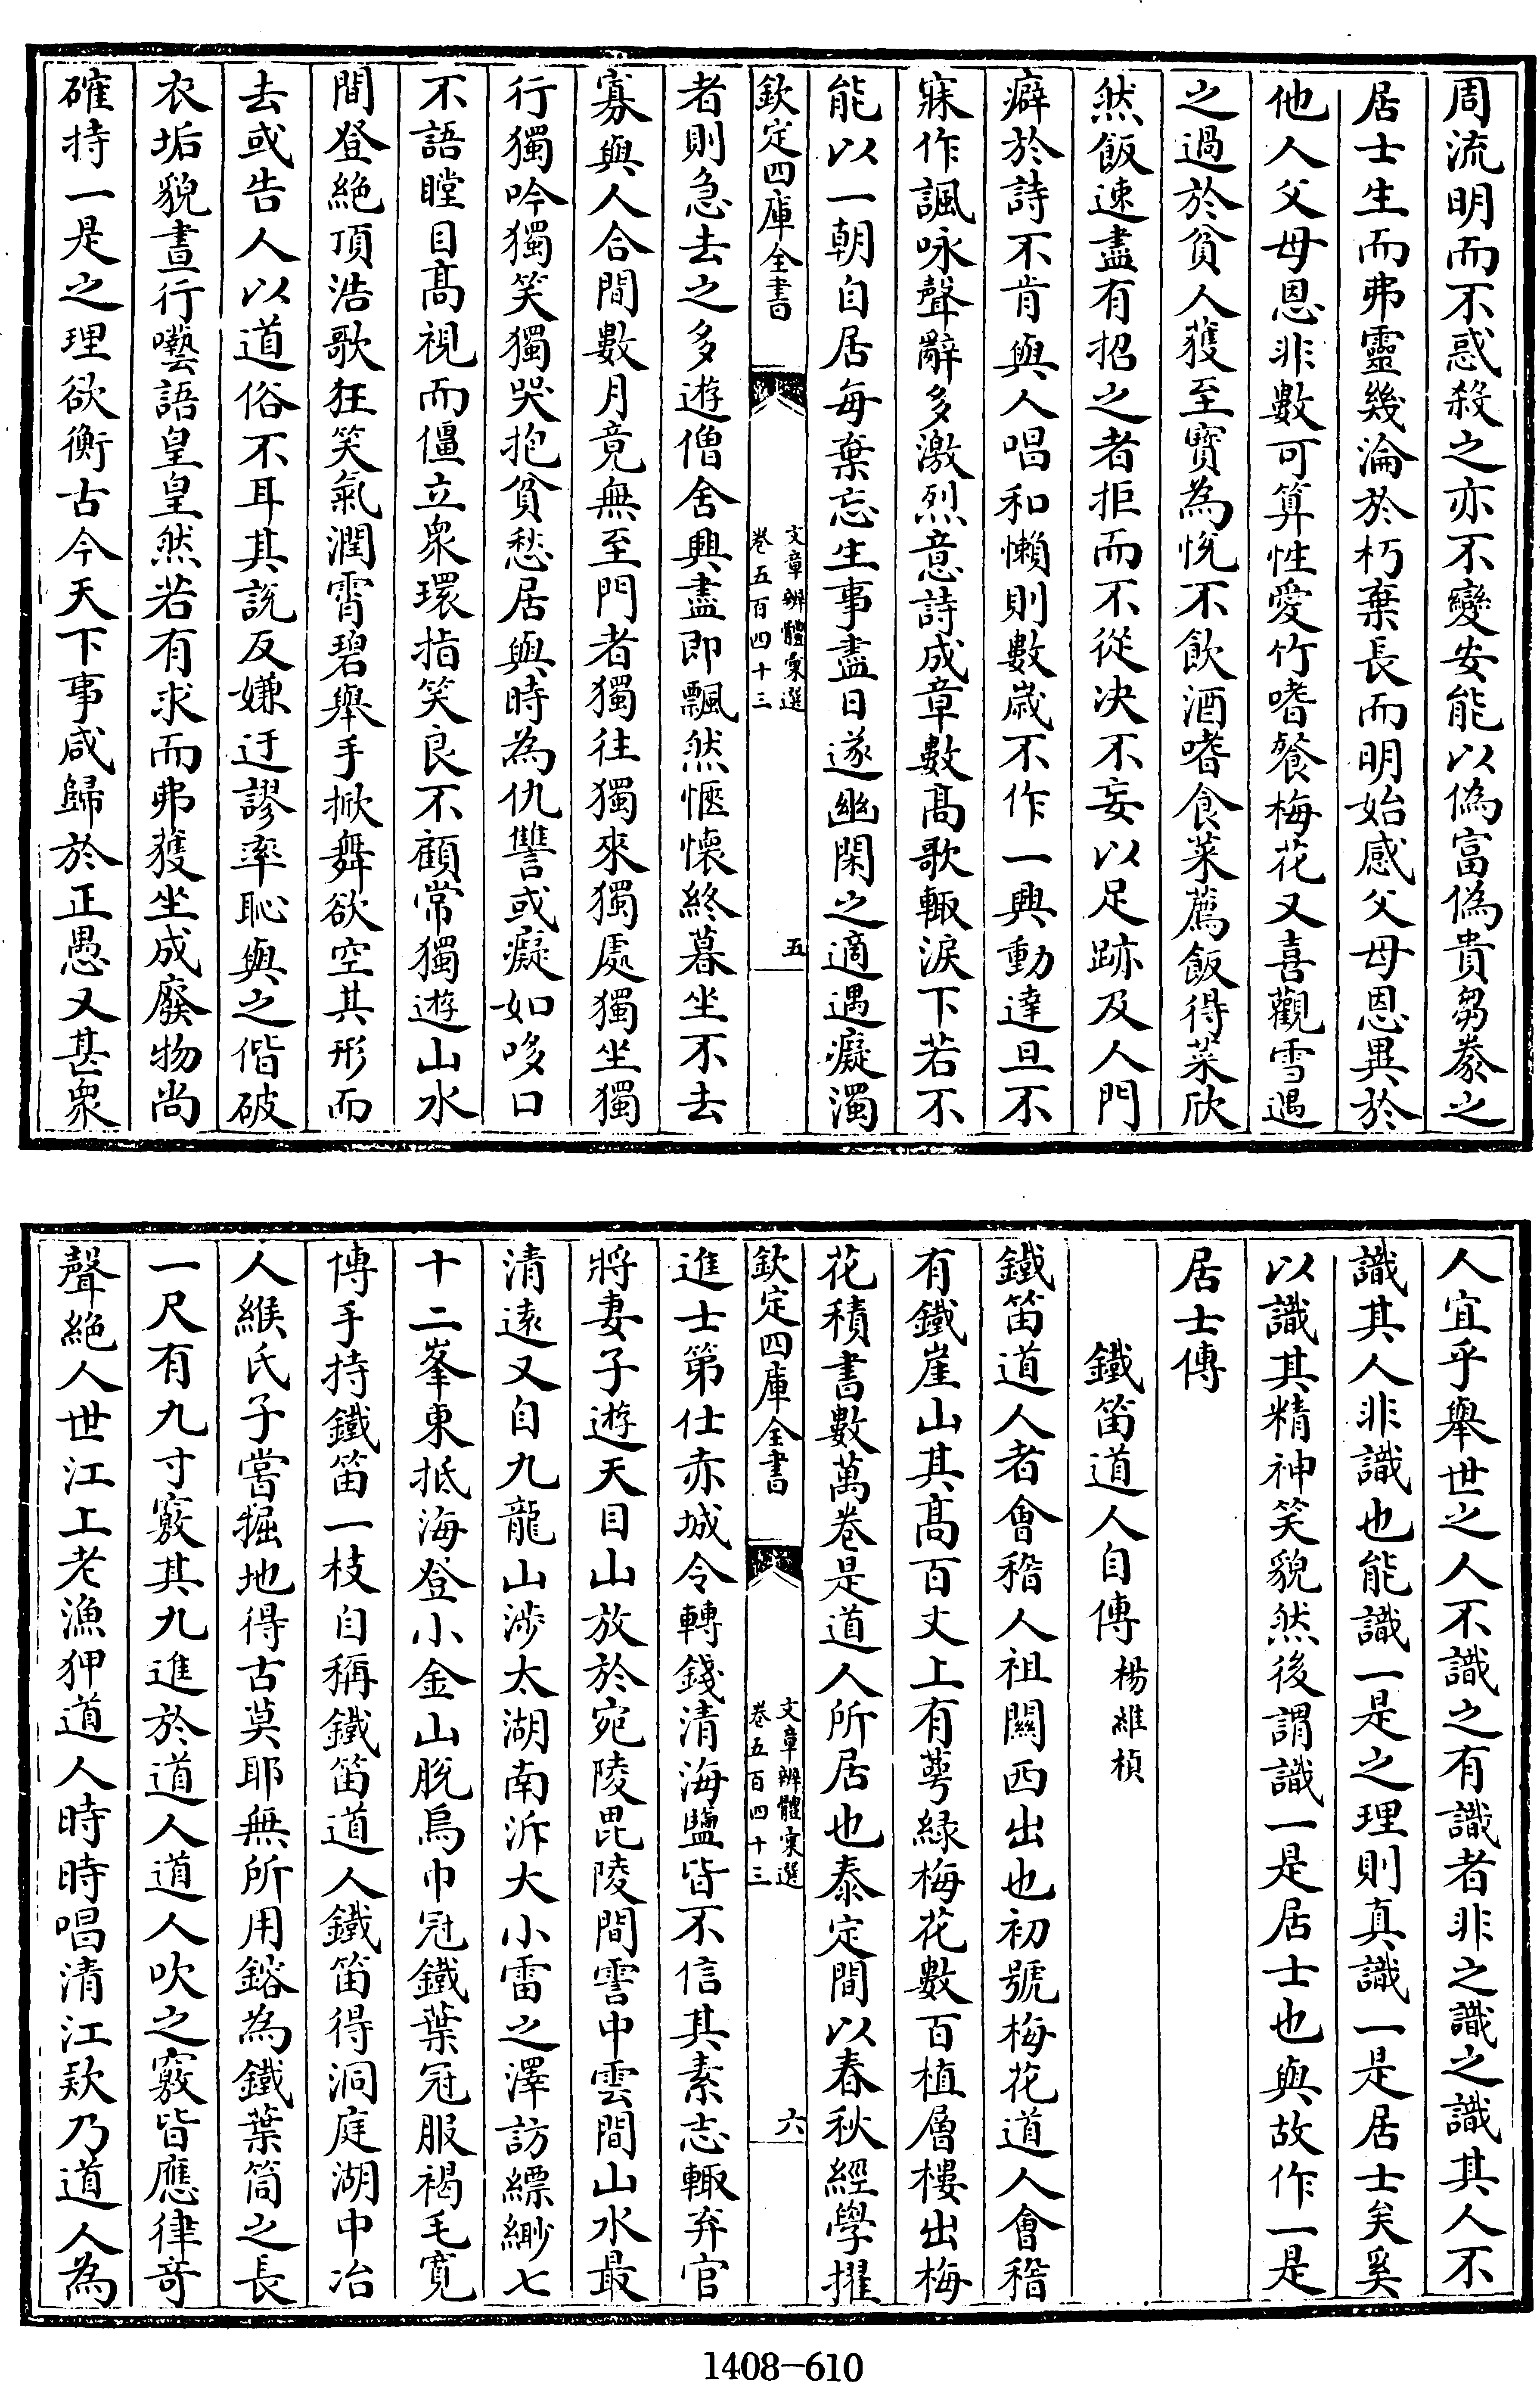 周流明而不惑殺之亦不變安能以偽富偽貴芻豢之
居士生而弗靈幾淪於朽棄長而明始感父母恩異於
他人父母恩非數可算性愛竹嗜餐梅花又喜觀雪遇
之過於貧人獲至寶為悅不飲酒嗜食菜薦飯得菜欣
然飯速盡有招之者拒而不從决不妄以足跡及人門
癖於詩不肯與人唱和懶則數嵗不作一興動達旦不
寐作諷咏聲辭多激烈意詩成章數髙歌輙淚下若不
能以一朝自居每棄忘生事盡日遂幽閑之適遇癡濁
欽定四庫全書
文章辨體彙選
卷五百四十三
五
者則急去之多遊僧舍興盡即飄然愜懷終暮坐不去
寡與人合間數月竟無至門者獨往獨來獨處獨坐獨
行獨吟獨笑獨哭抱貧愁居與時為仇讐或癡如哆口
不語瞠目髙視而僵立衆環指笑良不顧常獨遊山水
間登絶頂浩歌狂笑氣潤霄碧舉手掀舞欲空其形而
去或告人以道俗不耳其說反嫌迂謬率恥與之偕破
衣垢貌晝行囈語皇皇然若有求而弗獲坐成廢物尚
確持一是之理欲衡古今天下事咸歸於正愚又甚衆
人宜乎舉世之人不識之有識者非之識之識其人不
識其人非識也能識一是之理則真識一是居士矣奚
以識其精神笑貌然後謂識一是居士也與故作一是
居士傳
鐵笛道人自傳 楊維楨
鐵笛道人者會稽人祖關西出也初號梅花道人會稽
有鐵崖山其髙百丈上有萼緑梅花數百植層樓出梅
花積書數萬卷是道人所居也泰定間以春秋經學擢
欽定四庫全書
文章辨體彙選
卷五百四十三
六
進士第仕赤城令轉錢清海鹽皆不信其素志輙弃官
將妻子遊天目山放於宛陵毘陵間雪中雲間山水最
清遠又自九龍山涉太湖南泝大小雷之澤訪縹緲七
十二峯東抵海登小金山脫烏巾冠鐵葉冠服褐毛寛
博手持鐵笛一枝自稱鐵笛道人鐵笛得洞庭湖中冶
人緱氏子嘗掘地得古莫耶無所用鎔為鐵葉筒之長
一尺有九寸竅其九進於道人道人吹之竅皆應律竒
聲絶人世江上老漁狎道人時時唱清江欵乃道人為
1408-610